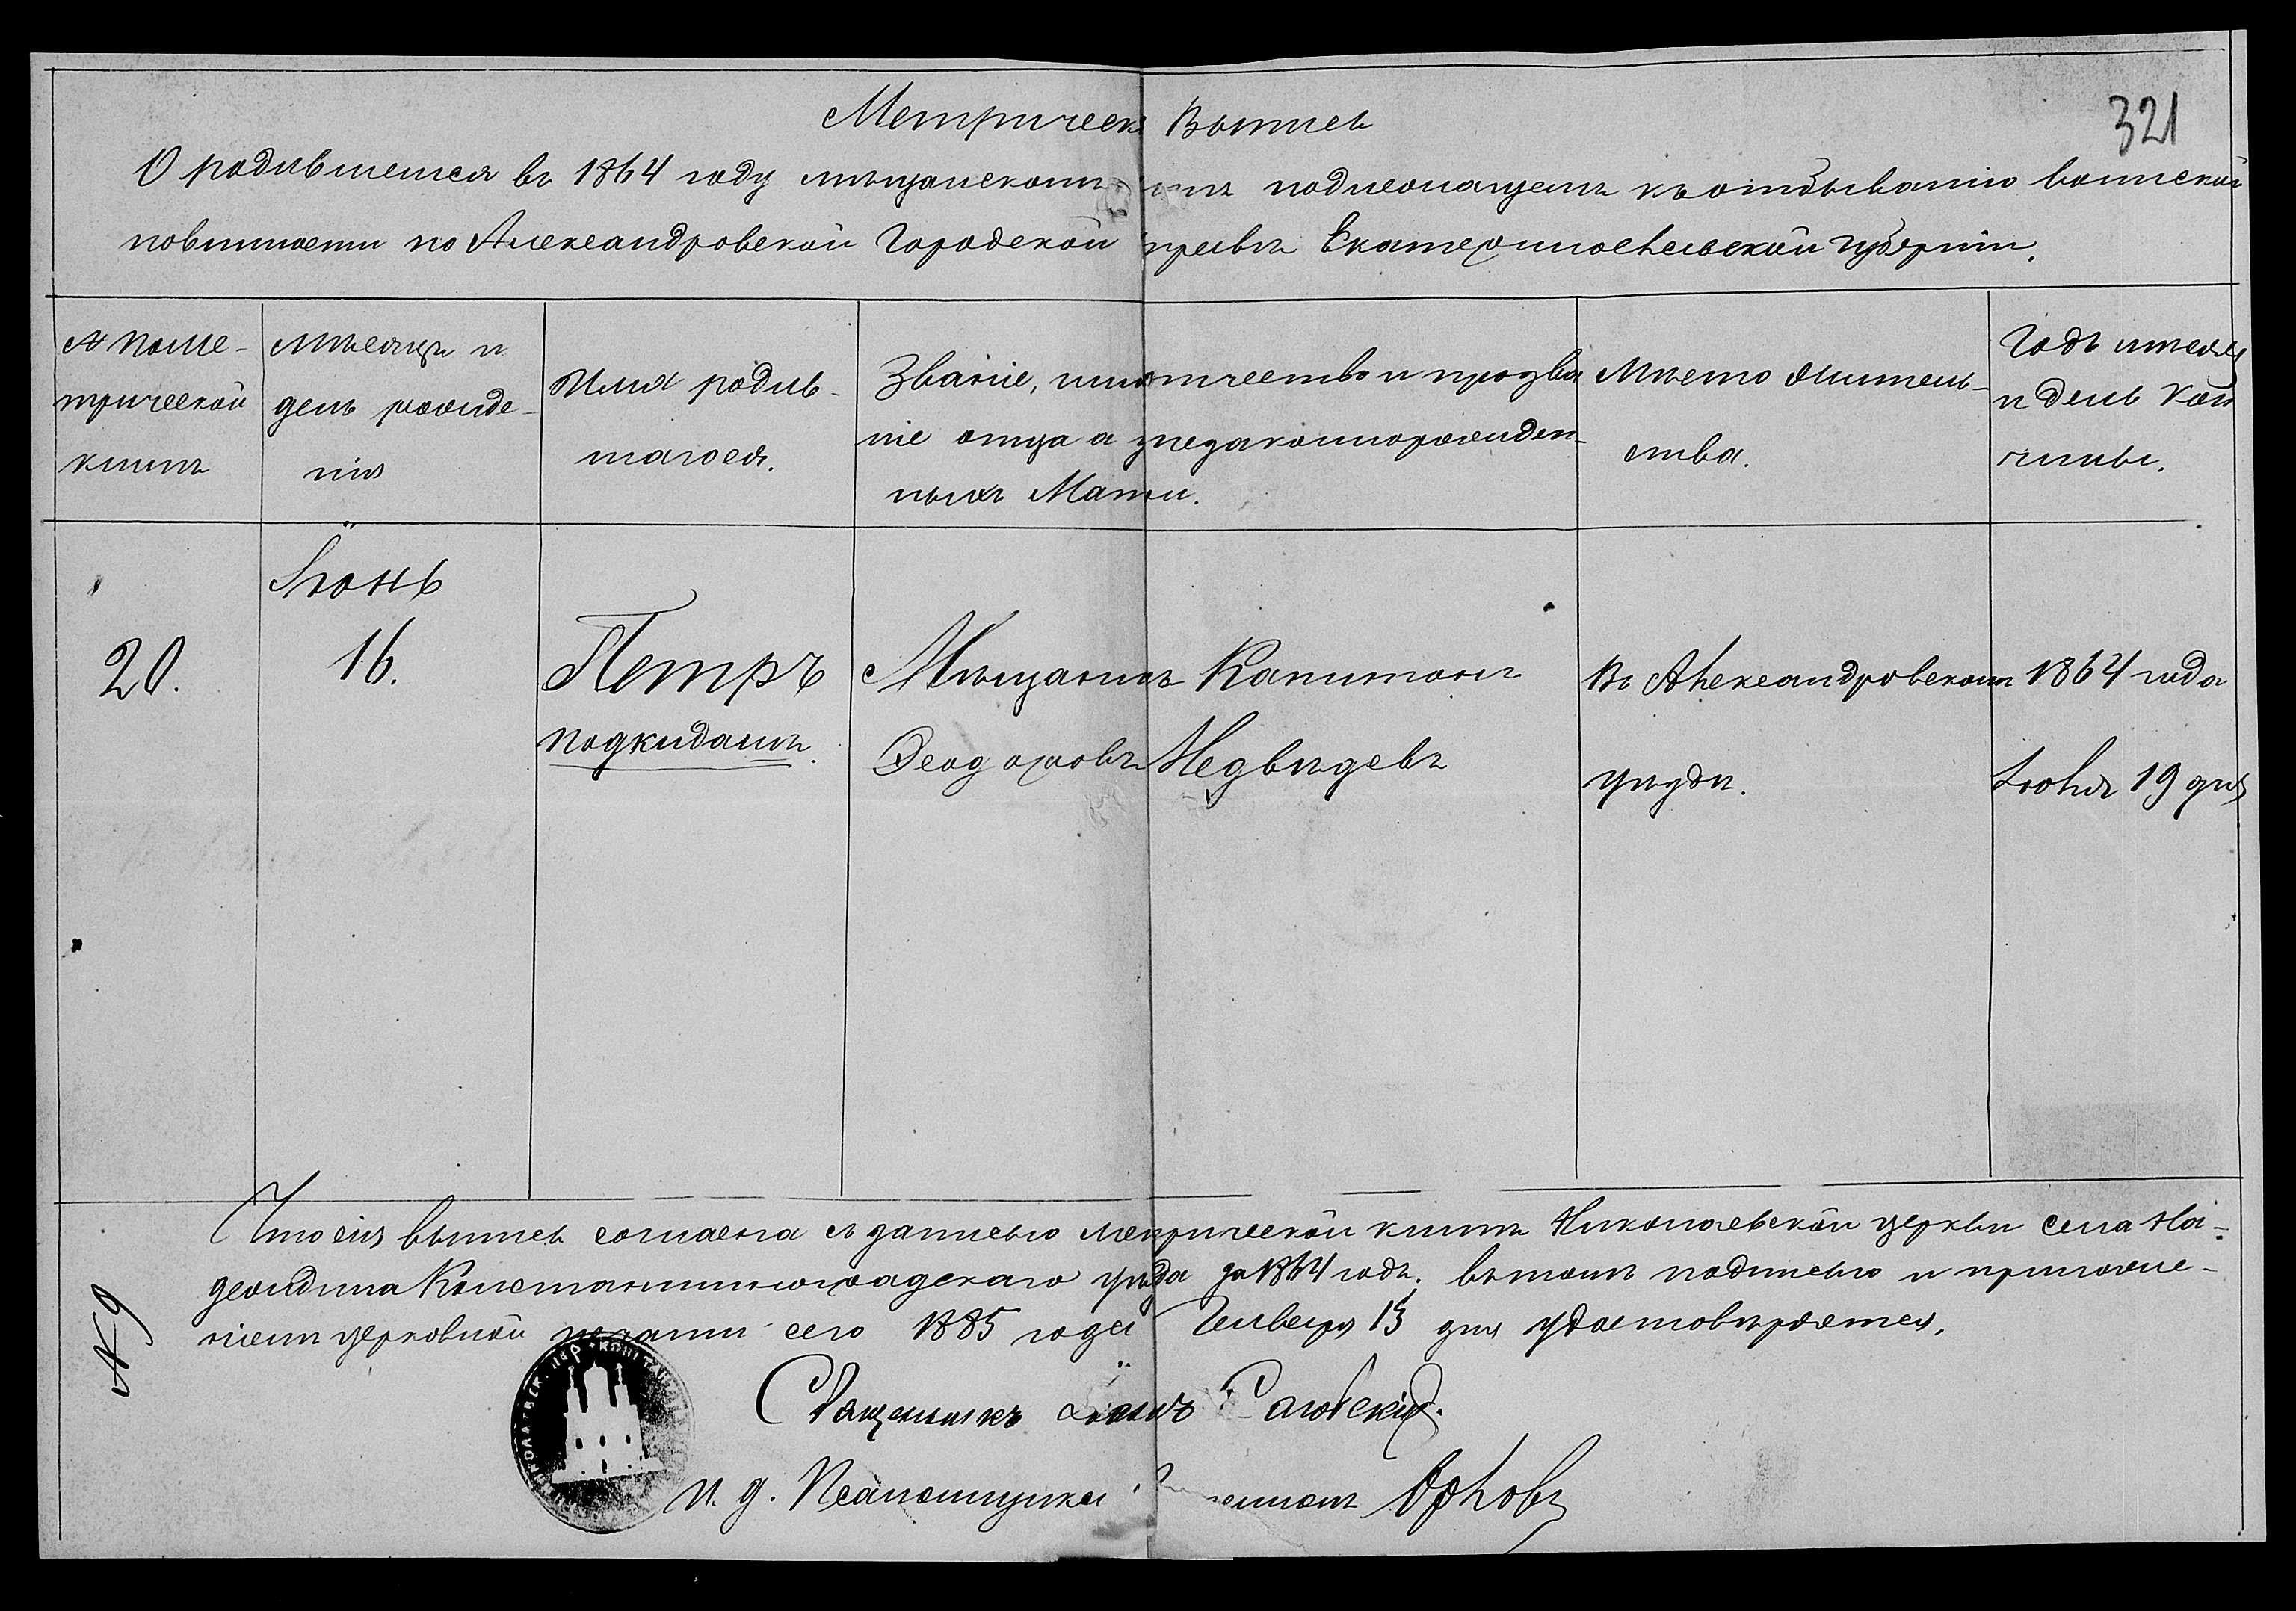 321
Метрическ Выпись
О родившемся въ 1864 году мѣщанскомъ подлежащемъ къ отбыванію воинской
повинности по Александровской Городской управѣ Екатеринославской губерніи.
№ по ме-
трической
книгѣ
Мѣсяцъ и
день рожде-
нія
Имя родив-
шагося.
Званіе, имя отчество и прозва
ніе отца а у незаконнорожден-
ныхъ Матери.
Мѣсто жительь-
ства.
Годъ мѣсяцъ
и день кон
чины.
20.
Іюнь
16.
Петръ
подкидышъ.
Мѣщанинъ Капитонъ
Феодоровъ Медвѣдевъ
Въ Александровскомъ
уѣздѣ.
1864 года
Іюня 19 дня
Что сія выпись согласна съ записью метрической книги Николаевской церкви села На-
деждина Константиноградскаго уѣзда за 1864 годъ. въ томъ подписью и приложе-
ніемъ церковной печати сего 1885 года Генваря 15 дня удостовѣряется.
№ 9
Священникъ
и. д. Псаломщика Орловъ